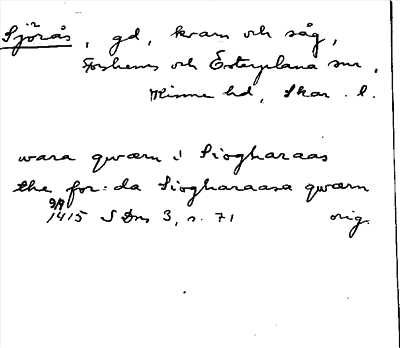 Sjörås, gd, kvarn och såg,
Forshems och Österplana snr,
Kinne hd, Skar. l.
wara qwærn i Siogharaas
the for: da Siogharaasa qwærn
9/9 1415 SDns 3, s. 71 orig.